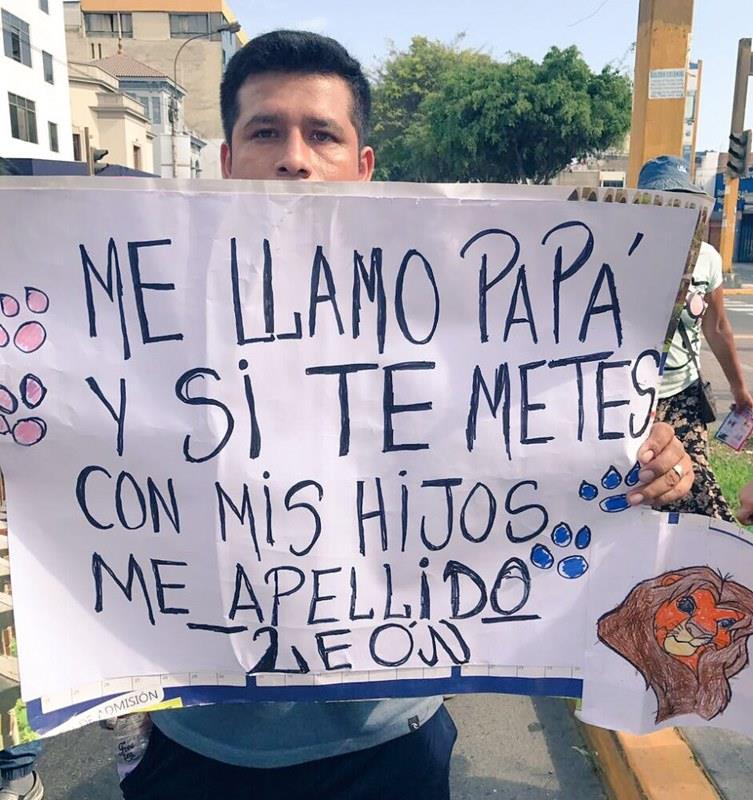 ME LLAMO PAPÁ
Y Si TE METES
CON MiS HiJOS
ME APELLiDO
LEÓN
DE ADMISIÓN